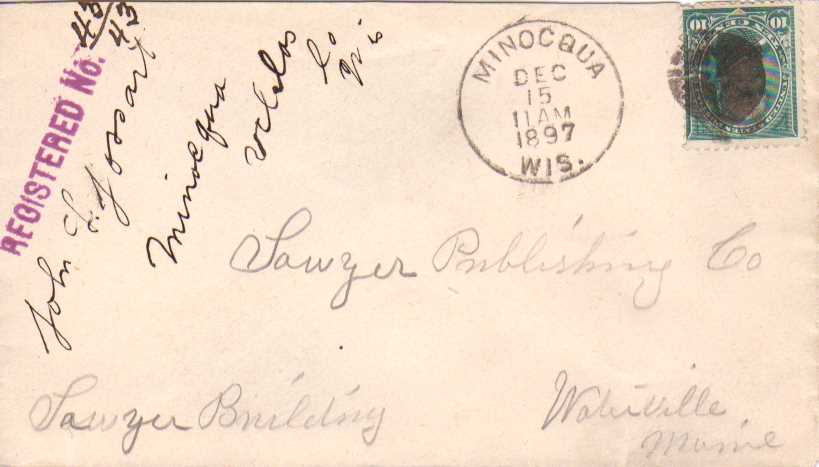 REGISTERED No. 43
43
John L. Gossart
Minocqua
Co
Wis
MINOCQUA
DEC
15
11 AM
1897
WIS.
10 10
Sawyer Publishing Co
Sawyer Building
Waterville
Maine